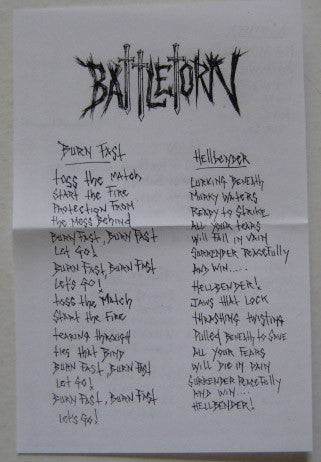 BATTLETORN
BURN FAST
toss the Match
START the FIRE
PROTECTION FROM
the MESS BEHIND
BURN FAST, BURN FAST
LET GO!
BURN FAST, BURN FAST
LET'S GO!
toss the Match
START the FIRE
tearing through
ties that BIND
BURN FAST, BURN FAST
LET GO!
BURN FAST, BURN FAST
LET'S GO!
HELLBENDER
LURKING BENEATH
MURKY WATERS
READY to STRIKE
ALL YOUR FEARS
WILL FALL IN VAIN
SURRENDER PEACEFULLY
AND WIN....
HELLBENDER!
JAWS THAT LOCK
THRASHING TWISTING
Pulled BENEATH to
ALL YOUR FEARS
WILL DIE IN PAIN
SURRENDER PEACEFULLY
AND WIN ...
HELLBENDER!